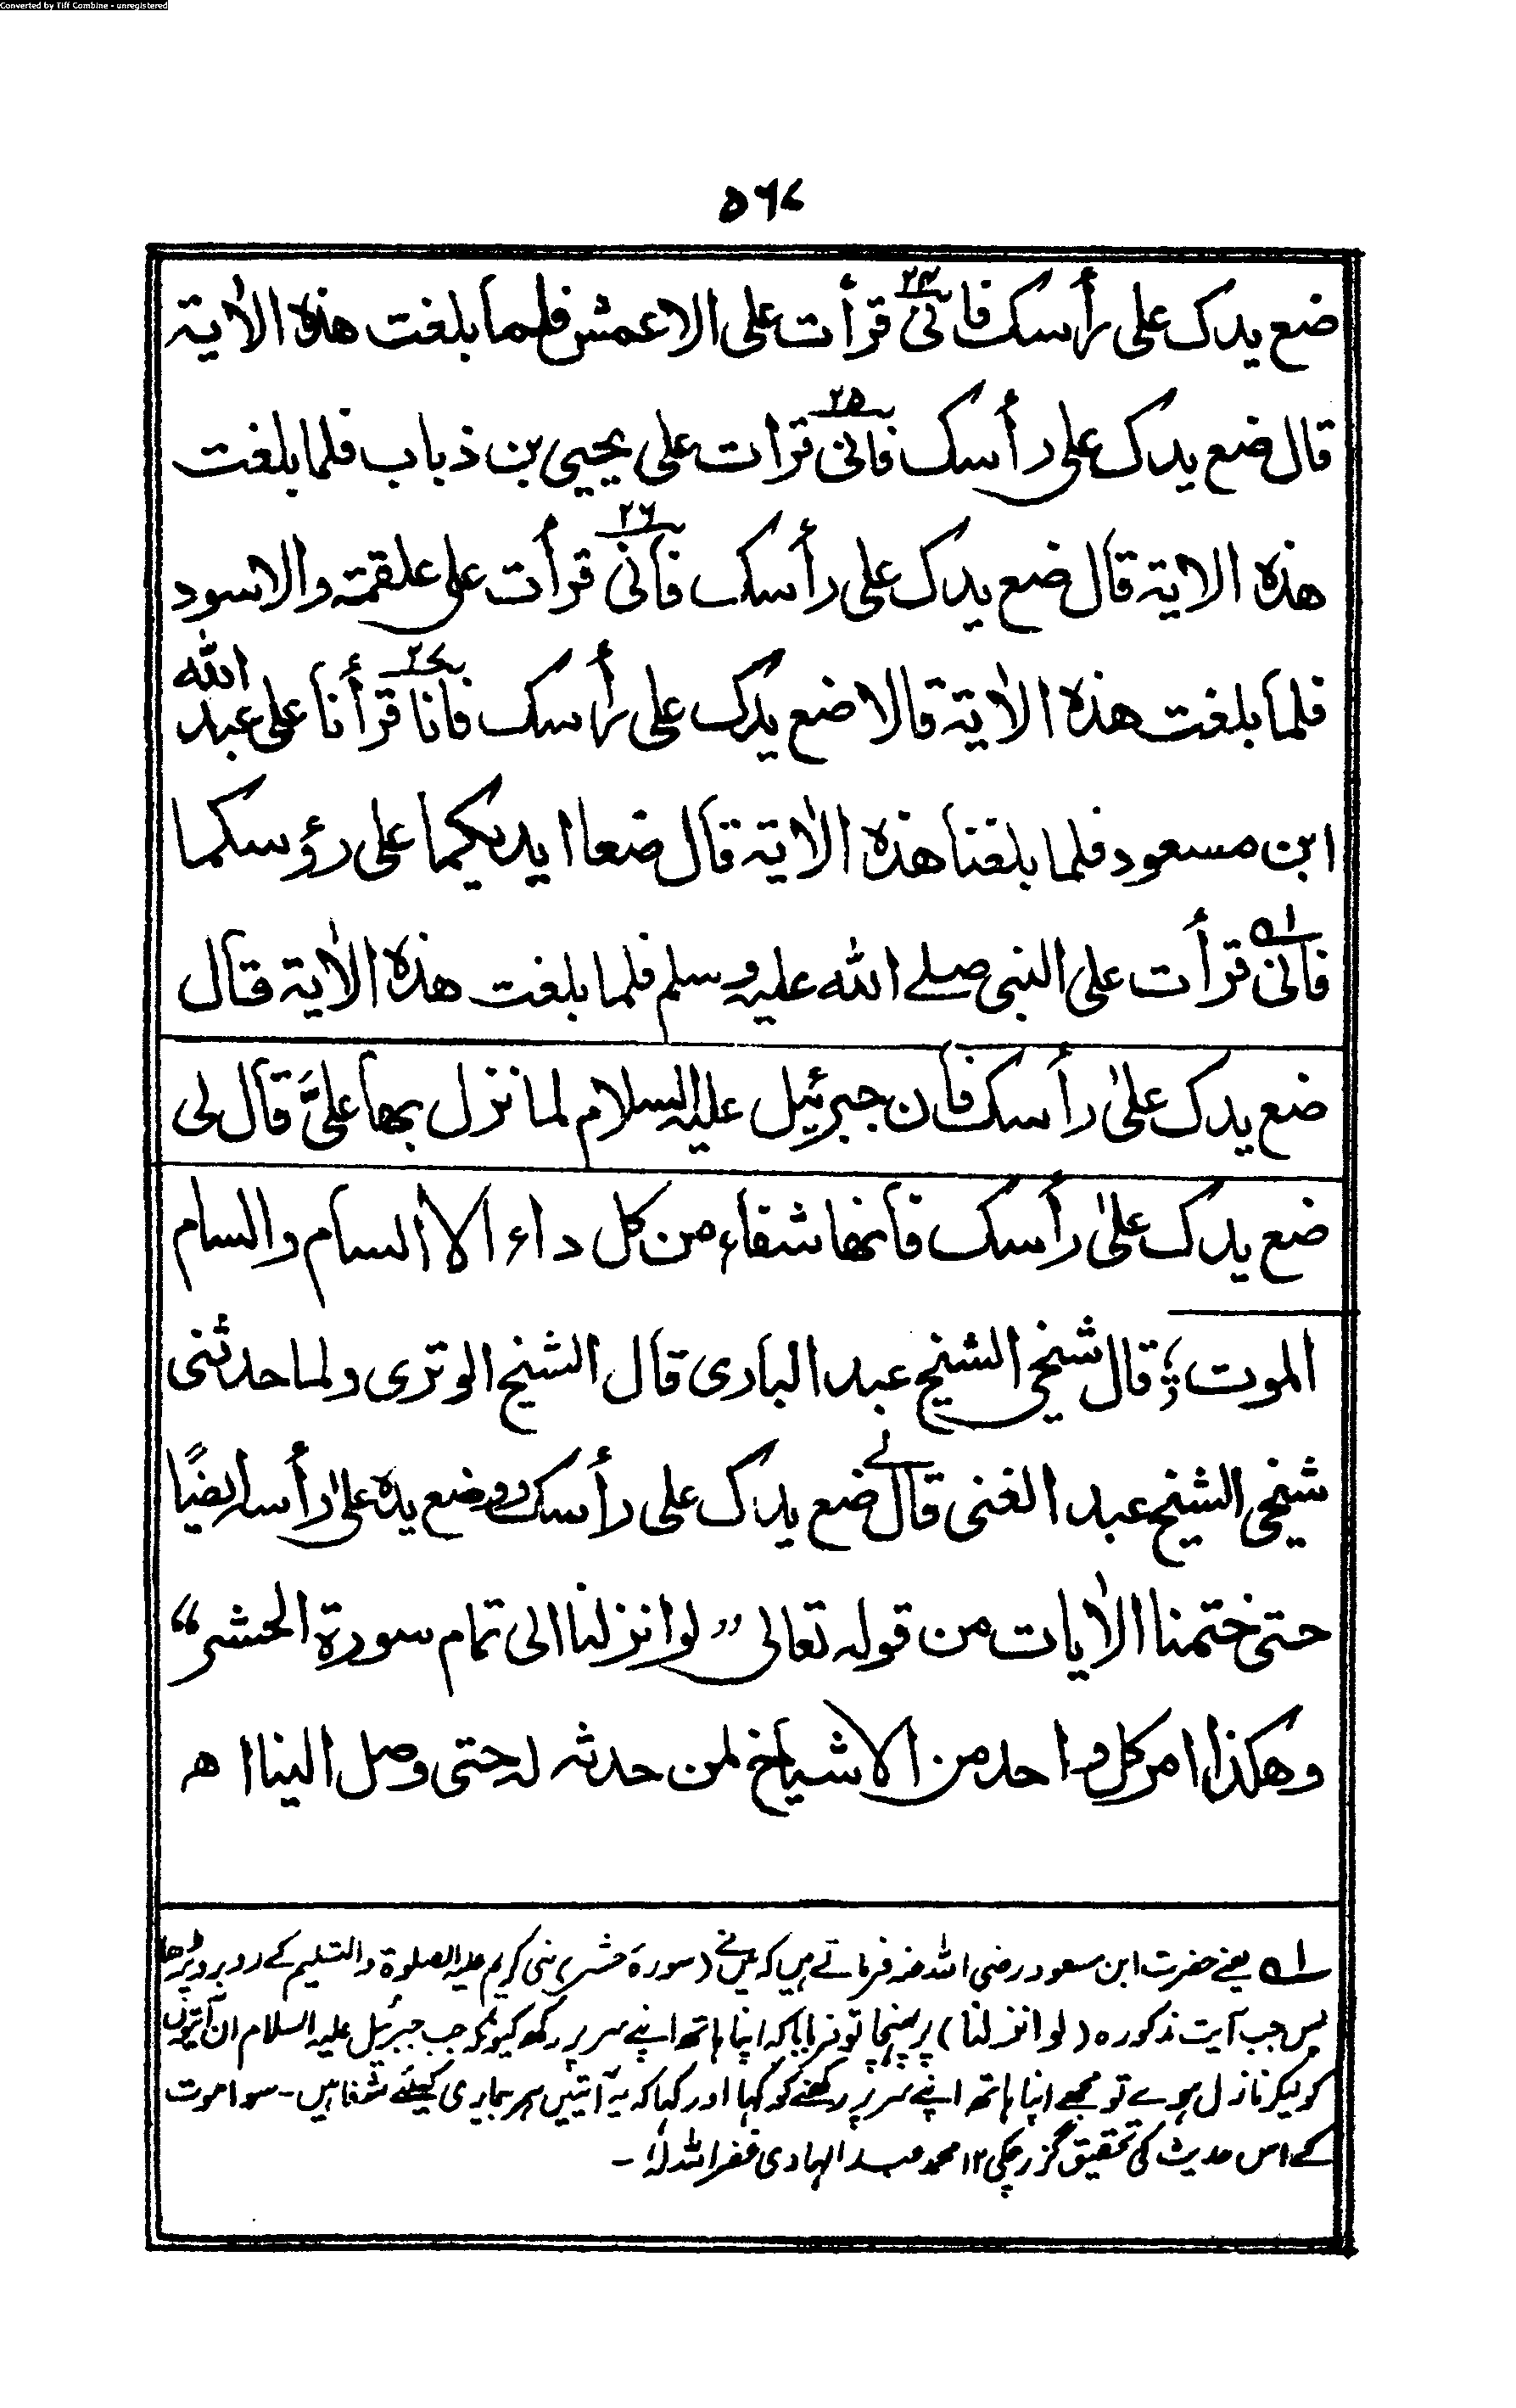 Converted by Tiff Combine - unregistered
۵۶۷
ضع يدك على رأسك فانى ۲۴ قرأت على الاعمش فلما بلغت هذه الاٰية
قال ضع يدك على رأسك فانى ۲۵ قرات على يحيى بن ذباب فلما بلغت
هذه الاية قال ضع يدك على رأسك فانى ۲۶ قرأت على علقمة والاسود
فلما بلغت هذه الاٰية قالا ضع يدك على رأسك فانا ۲۷ قرأنا على عبد الله
ابن مسعود فلما بلغنا هذه الاٰية قال ضعا ايديكما على رؤسكما
فانى ۱ه قرأت على النبى صلے الله عليه وسلم فلما بلغت هذه الاٰية قال
ضع يدك علىٰ رأسك فان جبرئيل عليه السلام لما نزل بها علىَّ قال لى
ضع يدك علىٰ رأسك فانها شفاء من كل داء الا السام والسام
الموت ؛ قال شيخى الشيخ عبد البارى قال الشيخ الوترى ولما حدثنى
شيخى الشيخ عبد الغنى قال لے ضع يدك على رأسك ووضع يده علىٰ رأسه ايضًا
حتى ختمنا الاٰيات من قوله تعالى ,, لو انزلنا الى تمام سورة الحشر “
وهكذا امر كل واحد من الاشياخ لمن حدثه له حتى وصل الينا اھ
۱ه یعنے حضرت ابن مسعود رضی اللہ عنہ فرماتے ہیں کہ میں نے (سورۂ حشر) نبی کریم علیہ الصلوۃ والتسلیم کے روبرو پڑھا
پس جب آیت مذکورہ (لو انزلنا) پر پہنچا تو فرمایا کہ اپنا ہاتھ اپنے سر پر رکھ کیونکہ جب جبرئیل علیہ السلام ان آیتوں
کو لیکر نازل ہوے تو مجھے اپنا ہاتھ اپنے سر پر رکھنے کو کہا اور کہا کہ یہ آیتیں ہر بیماری کیلئے شفا ہیں - سوا موت
کے اس حدیث کی تحقیق گزر چکی ۱۲ محمد عبد الہادی غفر اللہ لہٗ -